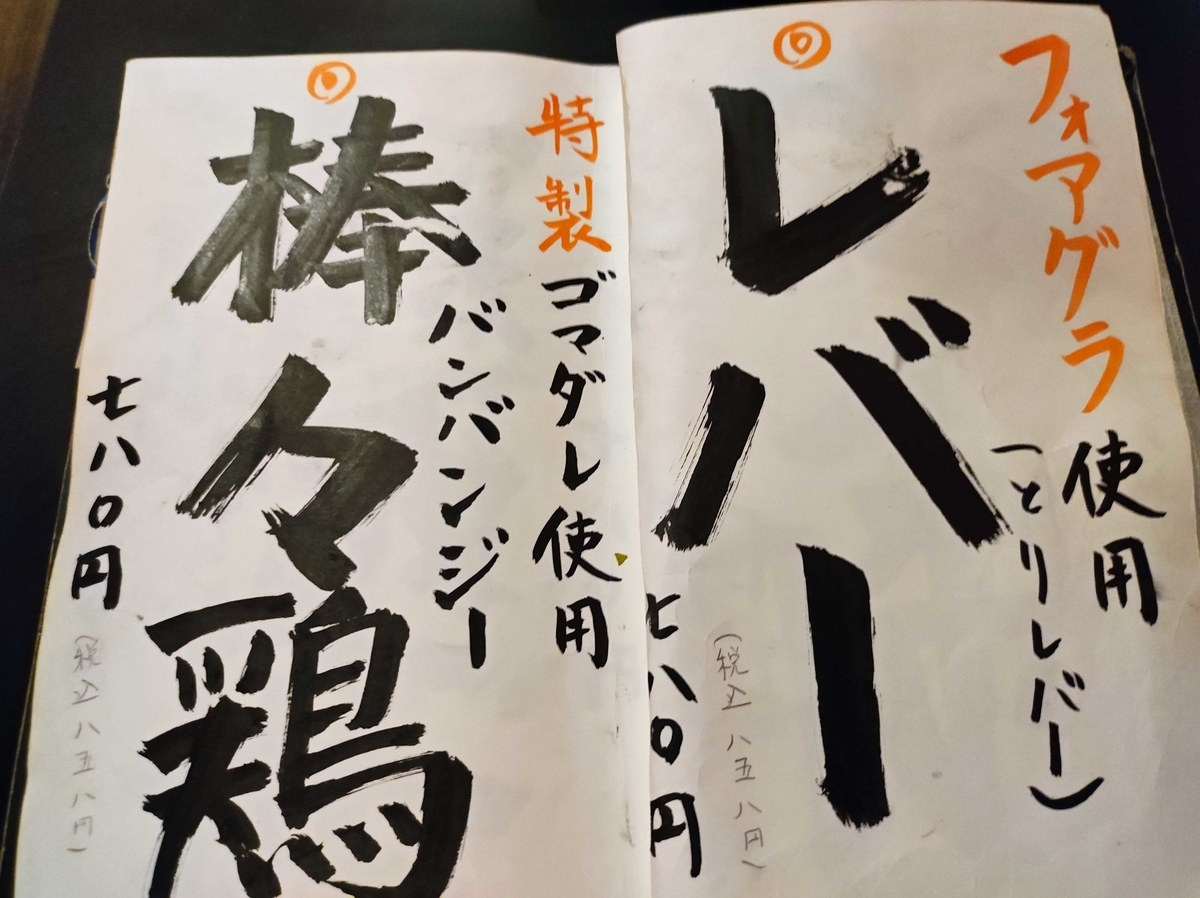 フォアグラ使用
（とりレバー）
レバー
七八〇円
（税込八五八円）
特製ゴマダレ使用
バンバンジー
棒々鶏
七八〇円
（税込八五八円）